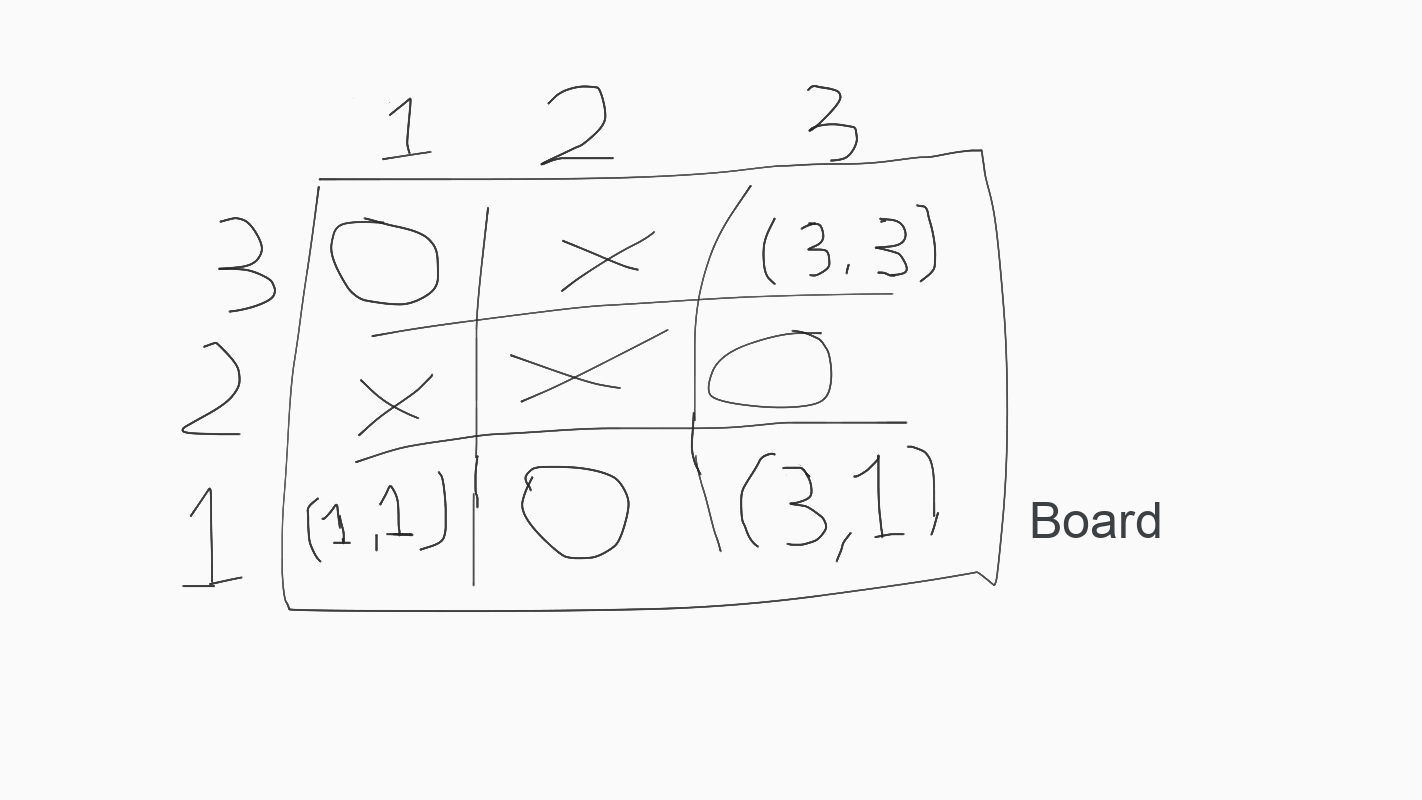 1 2 3
3 O X (3,3)
2 X X O
1 (1,1) O (3,1)
Board